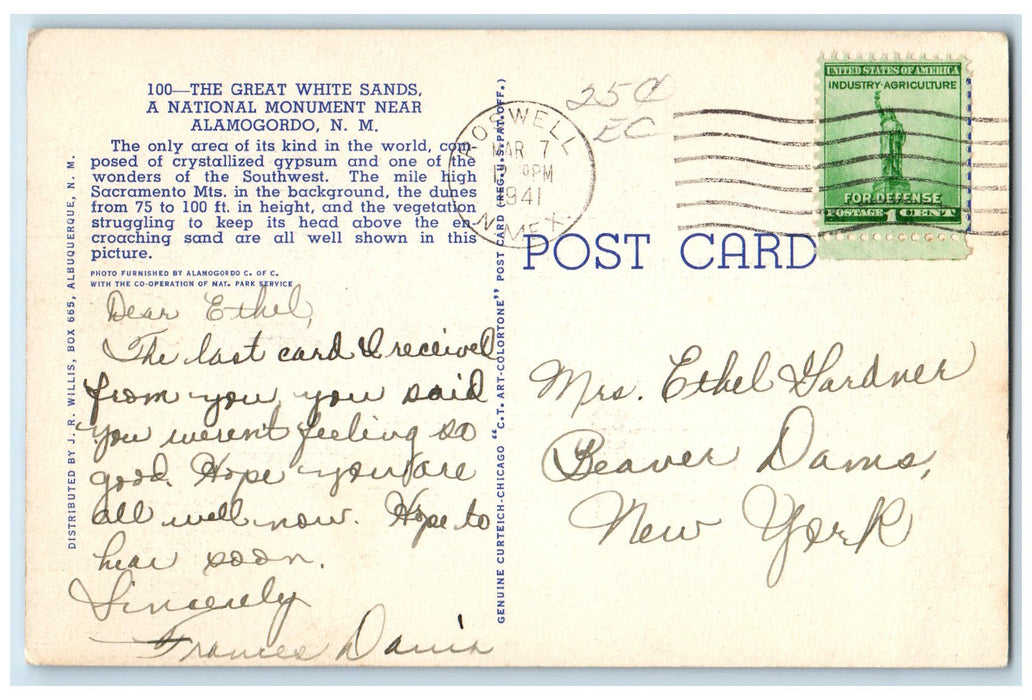 100—THE GREAT WHITE SANDS,
A NATIONAL MONUMENT NEAR
ALAMOGORDO, N. M.
The only area of its kind in the world, com-
posed of crystallized gypsum and one of the
wonders of the Southwest. The mile high
Sacramento Mts. in the background, the dunes
from 75 to 100 ft. in height, and the vegetation
struggling to keep its head above the en-
croaching sand are all well shown in this
picture.
PHOTO FURNISHED BY ALAMOGORDO C. OF C.
WITH THE CO-OPERATION OF NAT. PARK SERVICE
Dear Ethel,
The last card I received
from you you said
you weren't feeling so
good. Hope you are
all well now. Hope to
hear soon.
Sincerely
Frances
DISTRIBUTED BY J. R. WILLIS, BOX 665, ALBUQUERQUE, N. M.
GENUINE CURTEICH-CHICAGO "C.T. ART-COLORTONE" POST CARD (REG. U.S. PAT. OFF.)
ROSWELL
MAR 7
PM
1941
N. MEX.
25¢
EC
UNITED STATES OF AMERICA
INDUSTRY·AGRICULTURE
FOR DEFENSE
POSTAGE 1 CENT
POST CARD
Mrs. Ethel Gardner
Beaver Dams,
New York